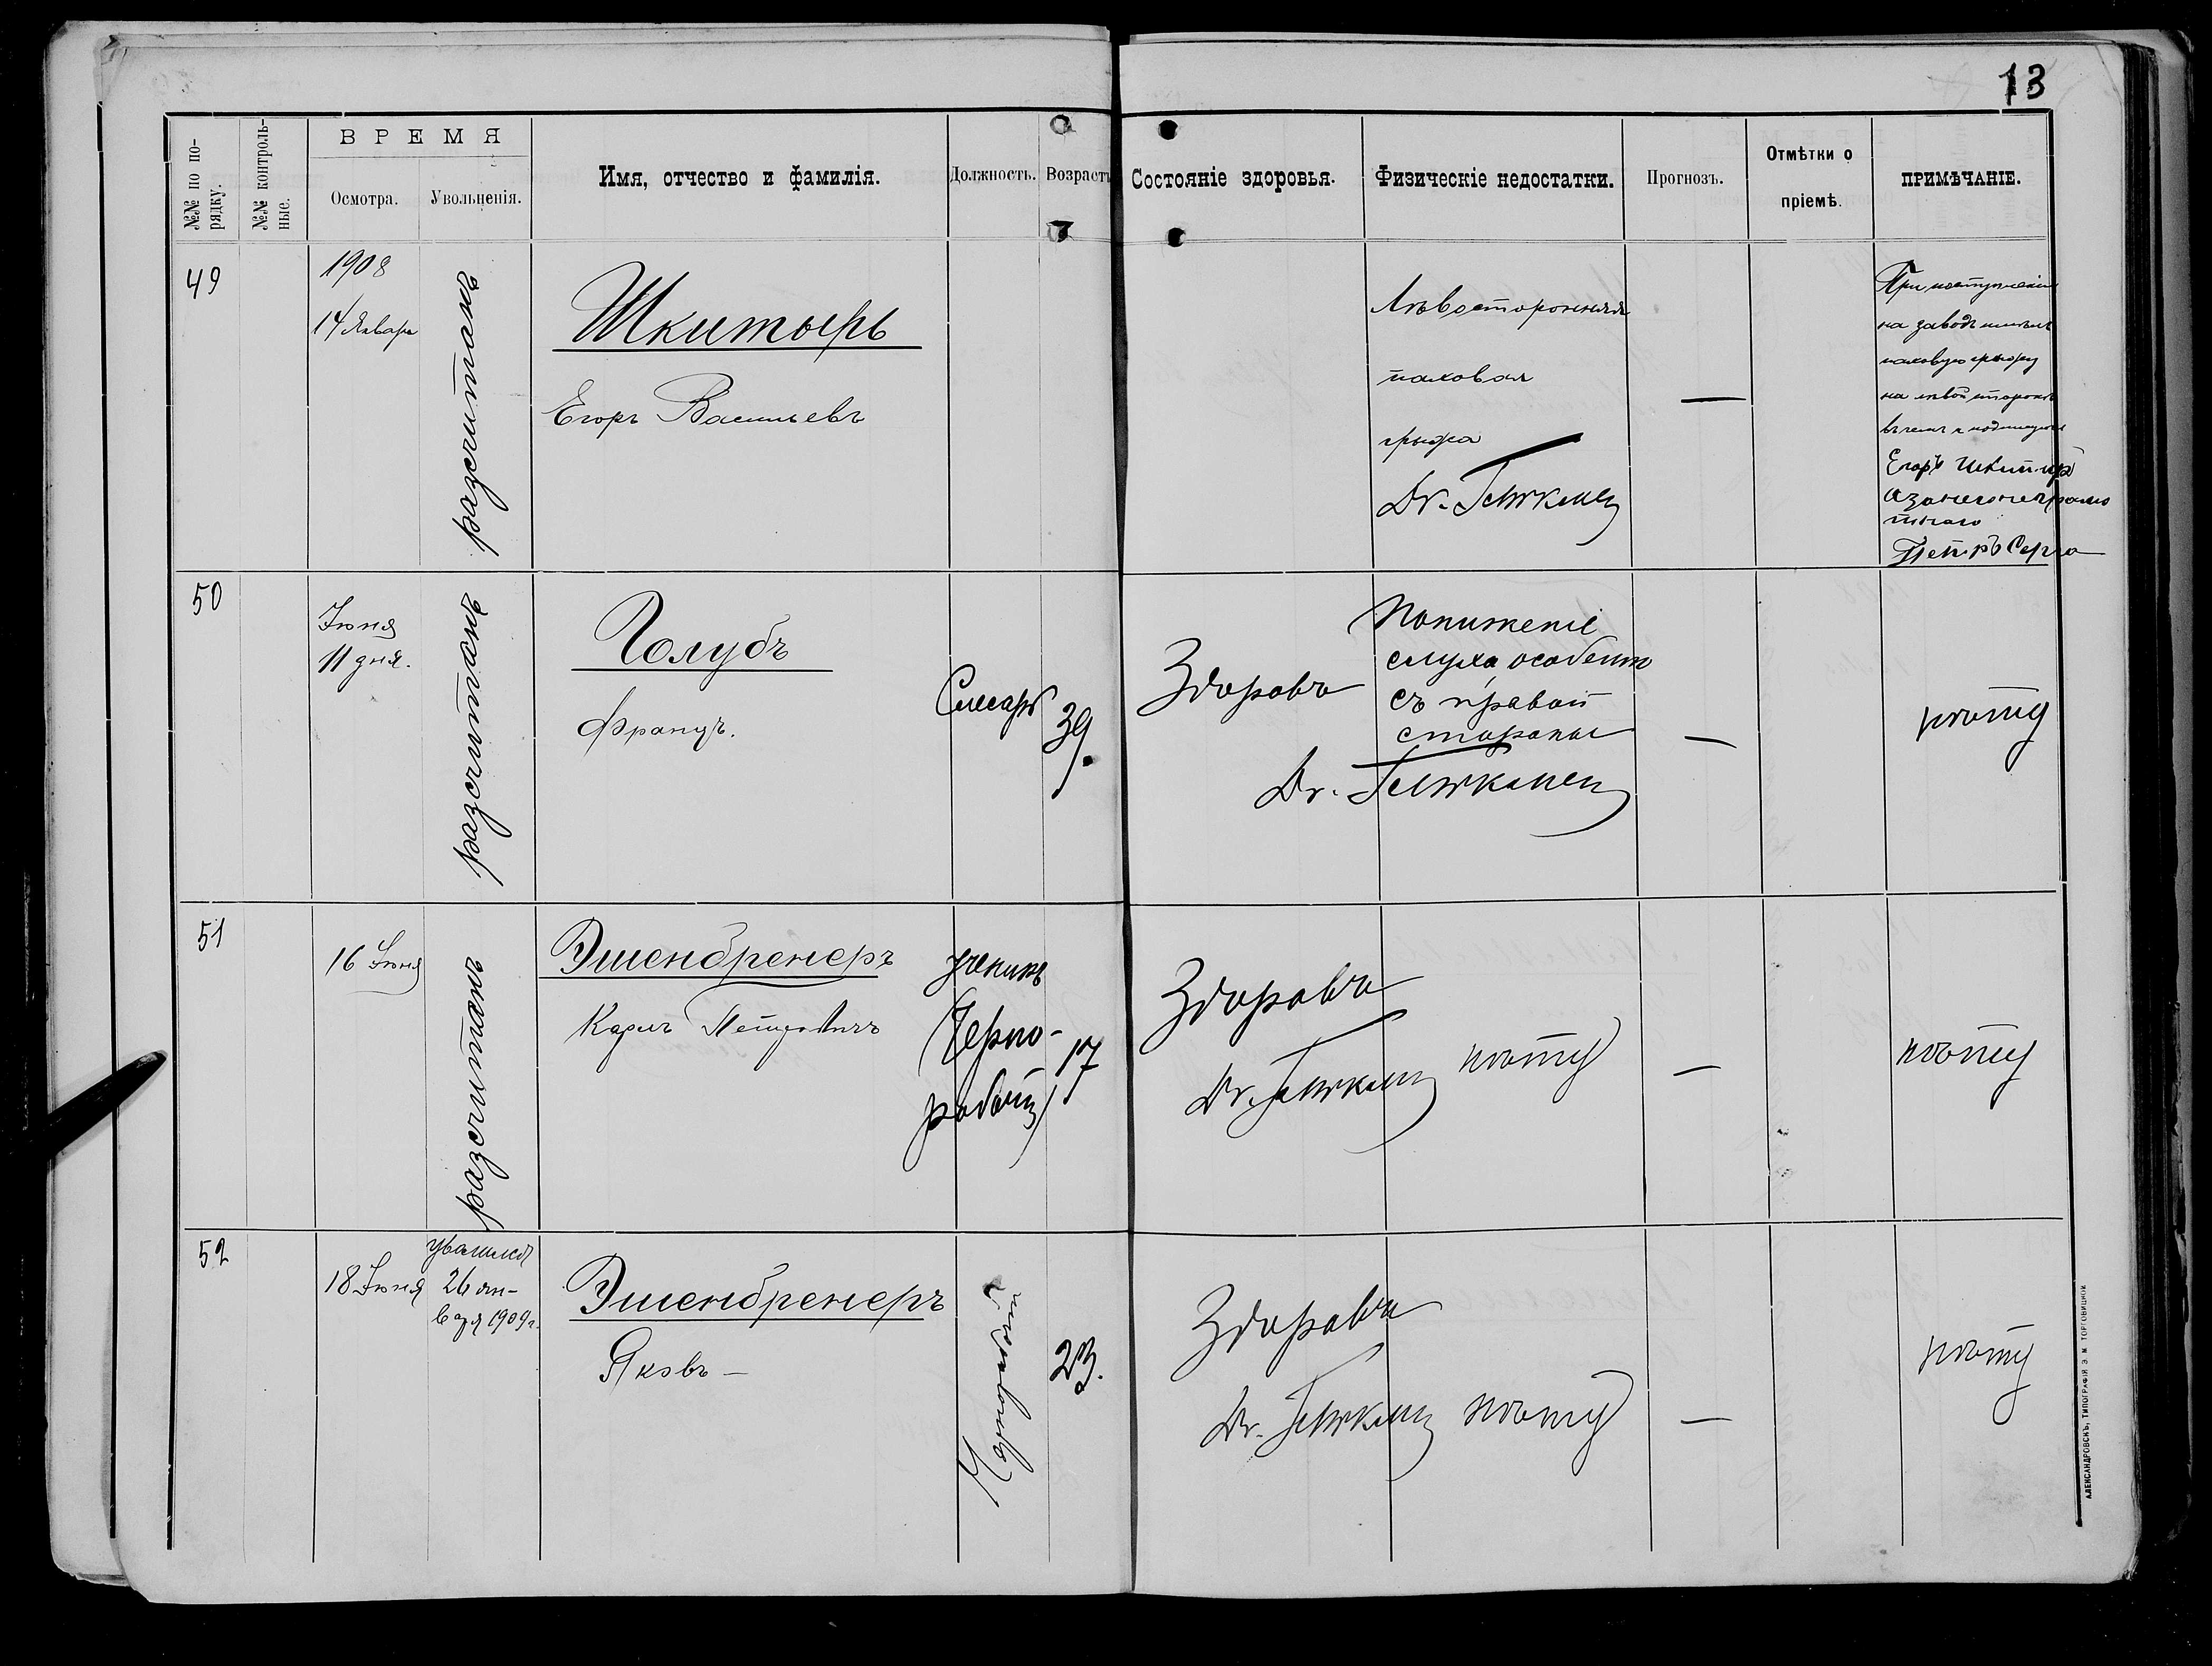 13
№№ по по-
рядку.
№№ контроль-
ные.
ВРЕМЯ
Осмотра.
Увольненія.
Имя, отчество и фамилія.
Должность.
Возрастъ
Состояніе здоровья.
Физическіе недостатки.
Прогнозъ.
Отмѣтки о
пріемѣ.
ПРИМѢЧАНІЕ.
49
1908
14 Января
разсчитанъ
Шкитырь
Егоръ Васильевъ
Лѣвосторонняя
паховая
грыжа
Dr.
—
При поступленіи
на заводъ имѣлъ
паховую грыжу
на лѣвой сторонѣ
въ чемъ и подписуюсь
Егоръ Шкитырь
а за него неграмо
тнаго
Петръ
50
Іюня
11 дня.
разсчитанъ
Голубъ
Францъ.
Слесарь
39.
Здоровъ
Пониженіе
слуха, особенно
съ правой
стороны
Dr.
—
нѣтъ
51
16 Іюня
разсчитанъ
Эшенбренеръ
Карлъ Петровичъ
ученикъ
(Черно-
рабочій)
17
Здоровъ
Dr.
нѣтъ
—
нѣтъ
52
18 Іюня
уволился
26 ян-
варя 1909 г.
Эшенбренеръ
Яковъ —
Чернорабочій
23.
Здоровъ
Dr.
нѣтъ
—
нѣтъ
АЛЕКСАНДРОВСКЪ, ТИПОГРАФІЯ Э. М. ТОРГОВИЦКОЙ